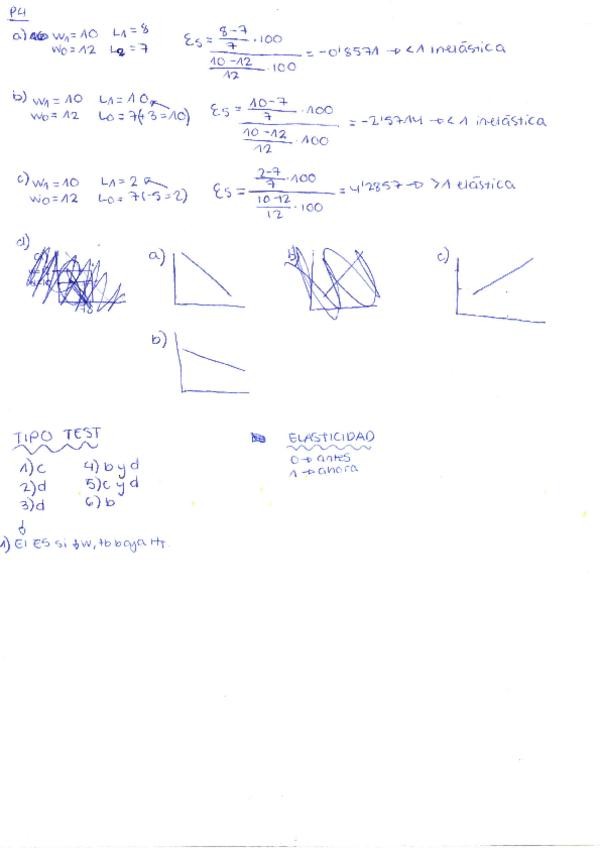 P4
a) W₁=10 L₁=8
W₀=12 L₂=7
Es = (8-7/7 · 100) / (10-12/12 · 100) = -0'8571 → <1 inelástica
b) W₁=10 L₁=10
W₀=12 L₀=7(+3=10)
Es = (10-7/7 · 100) / (10-12/12 · 100) = -2'5714 → <1 inelástica
c) W₁=10 L₁=2
W₀=12 L₀=7(-5=2)
Es = (2-7/7 · 100) / (10-12/12 · 100) = 4'2857 → >1 elástica
d)
a)
b)
c)
b)
TIPO TEST
1) c 4) b y d
2) d 5) c y d
3) d 6) b
1) El ES si ↓w, tb baja HT.
ELASTICIDAD
0 → antes
1 → ahora